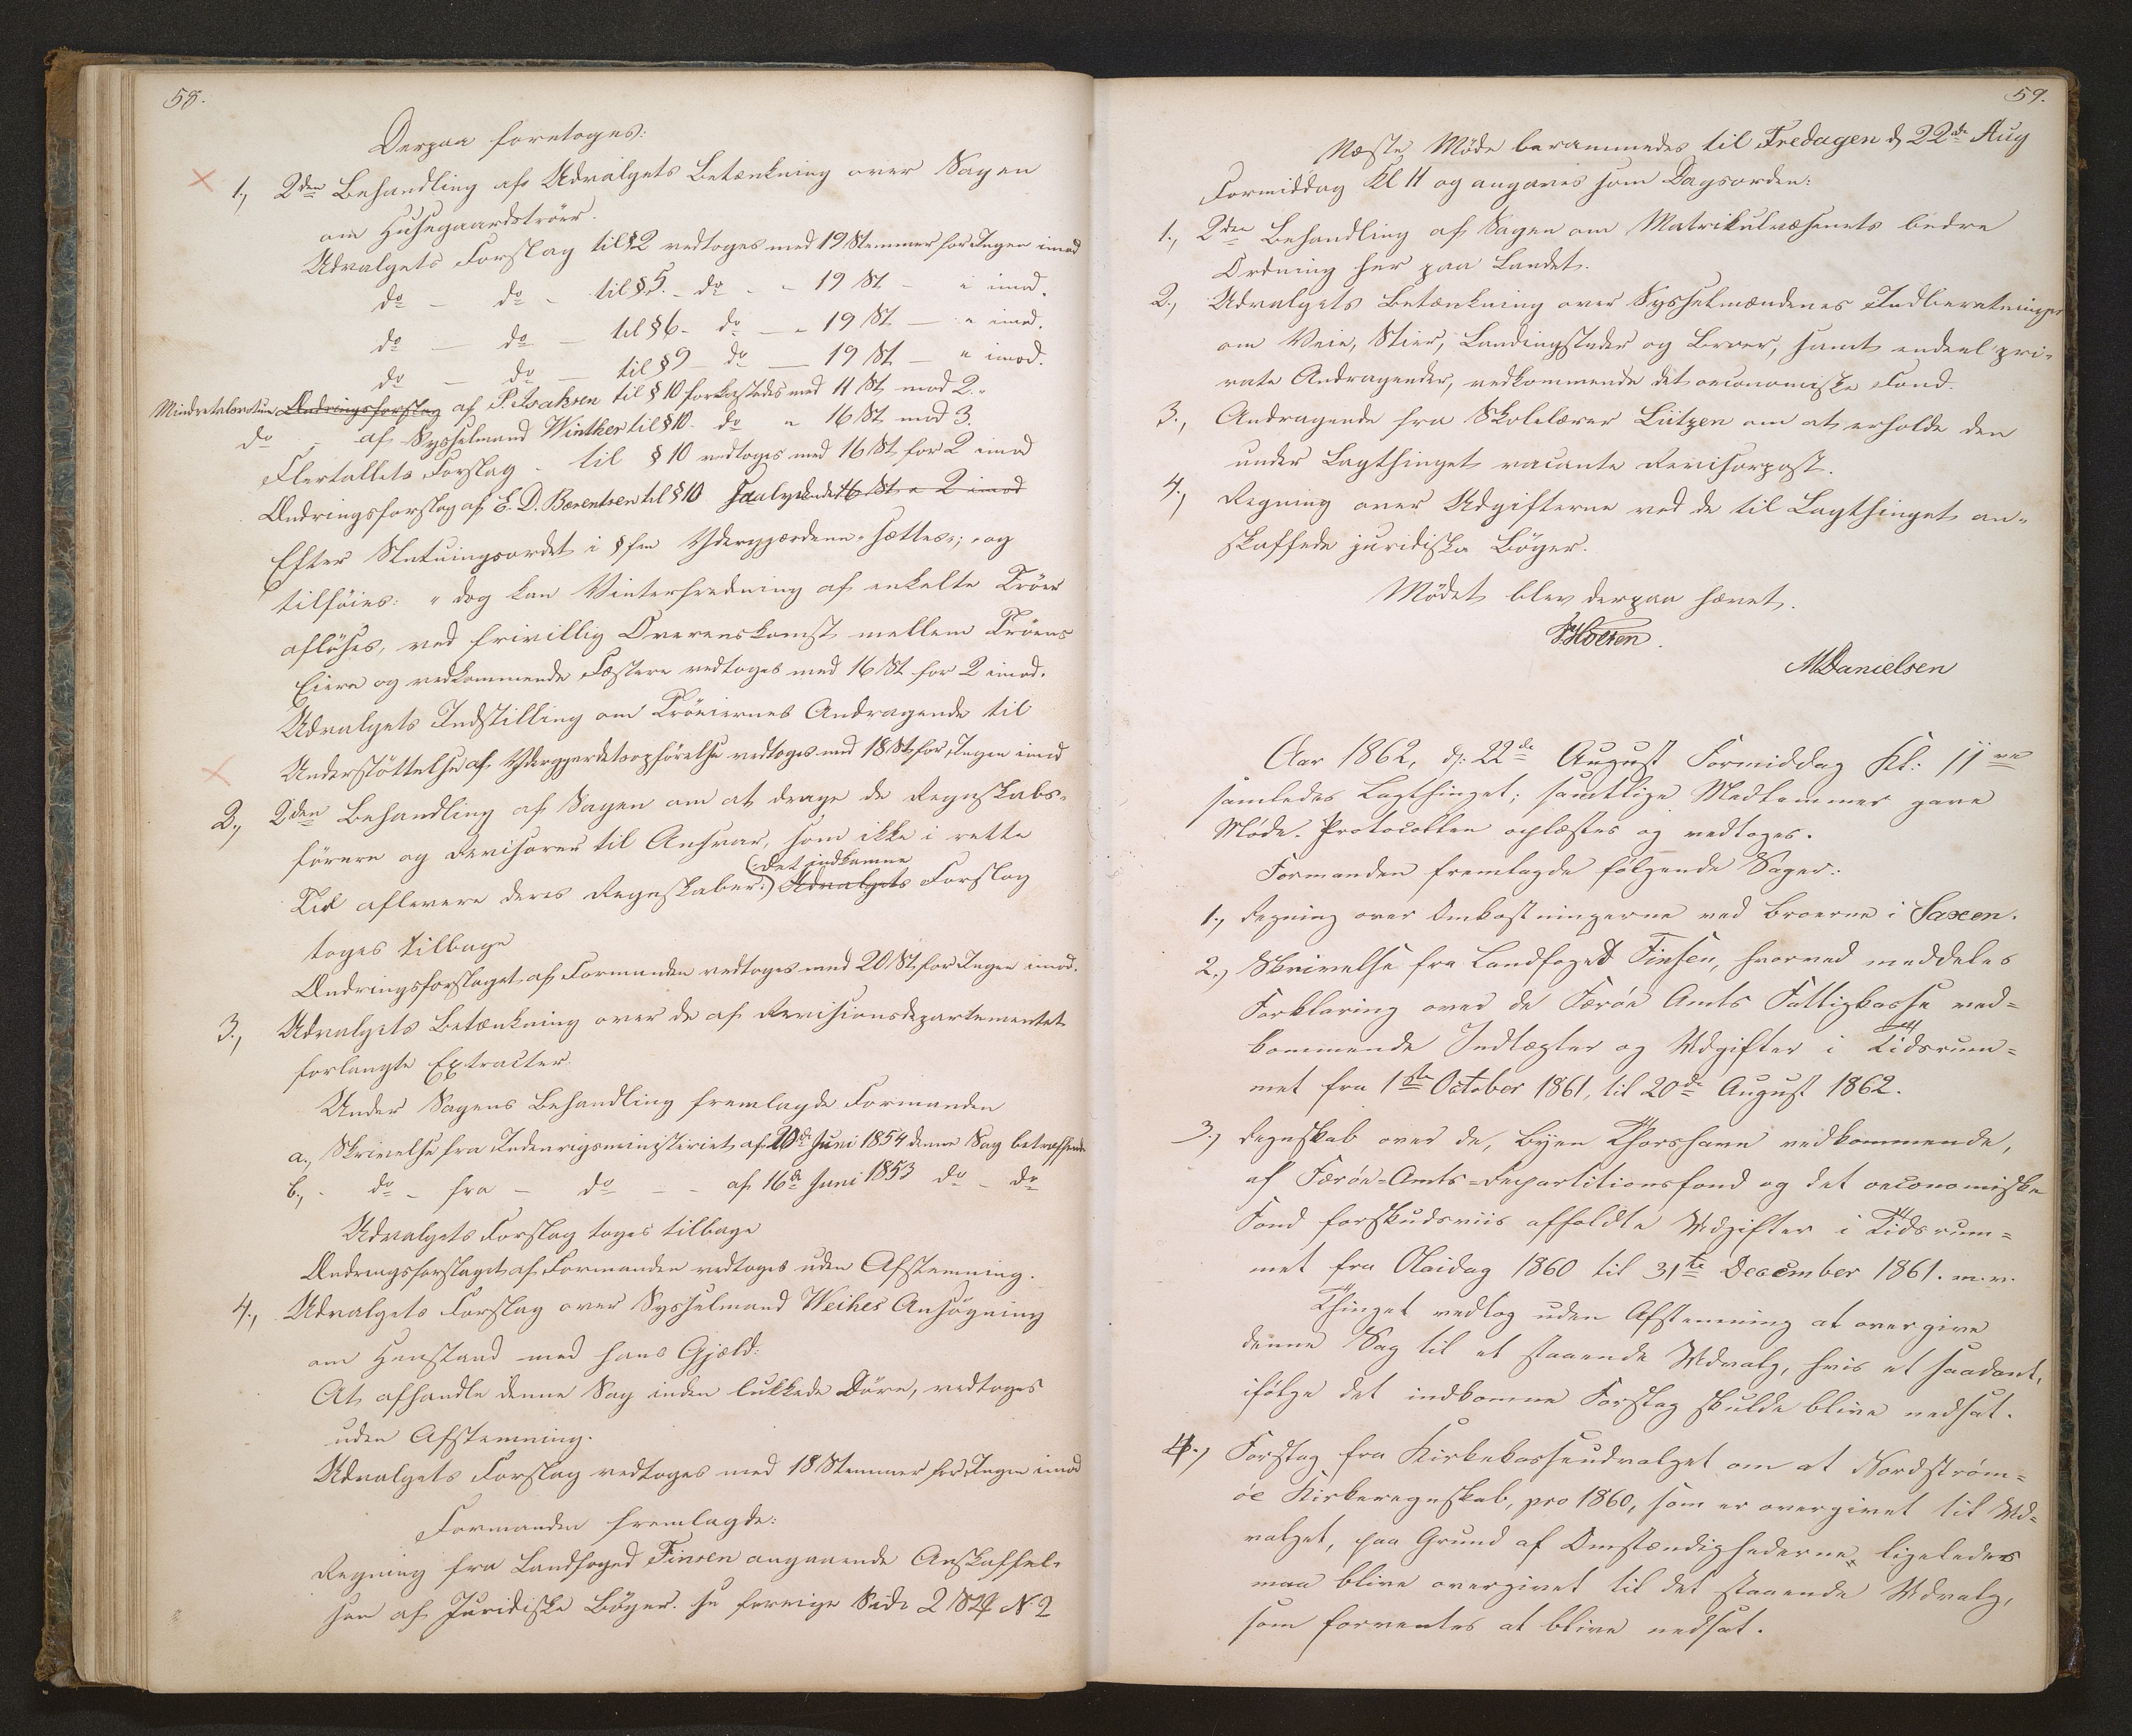 58.
Derpaa foretoges:
1, 2den Behandling af Udvalgets Betænkning over Sagen
om Husegaardströer.
Udvalgets Forslag til § 2 vedtoges med 19 Stemmer for Ingen imod
do – do – til § 5. – do – – 19 St – " imod.
do – do – til § 6 – do – – 19 St – " imod.
do – do – til § 9 – do – 19 St – " imod.
Mindretalsvotum Ændringsforslag af P. Isaksen til § 10 forkastedes med 11 St mod 2.
do – af Sysselmand Winther til § 10. do " 16 St mod 3.
Flertallets Forslag – til § 10 vedtoges med 16 St for 2 imod
Ændringsforslag af E. D. Bærentsen til § 10 saalydende 16 St " 2 imod
Efter Slutningsordet i §fen Ydergjærdene "sættes"; "og
tilföies: " dog kan Vinterfredning af enkelte Tröer
aflöses, ved frivillig Overenskomst mellem Tröens
Eiere og vedkommende Fæstere vedtoges med 16 St for 2 imod.
Udvalgets Indstilling om Tröeiernes Andragende til
Understöttelse af Ydergjærdetsopförelse vedtoges med 18 St for Ingen imod
2., 2den Behandling af Sagen om at drage de Regnskabs-
förere og Revisorer til Ansvar, som ikke i rette
Tid aflevere deres Regnskaber:) det indkomne Udvalgets Forslag
toges tilbage
Ændringsforslaget af Formanden vedtoges med 20 St for Ingen imod.
3., Udvalgets Betænkning over de af Revisionsdepartementet
forlangte Extracter.
Under Sagens Behandling fremlagde Formanden
a., Skrivelse fra Indenrigsministeriet af 20de Juni 1854 denne Sag betræffende
b., – do – fra – do – – af 16de Juni 1853 do – do
Udvalgets Forslag toges tilbage
Ændringsforslaget af Formanden vedtoges uden Afstemning.
4., Udvalgets Forslag over Sysselmand Weihes Ansögning
om Henstand med hans Gjæld:
At afhandle denne Sag inden lukkede Döre, vedtoges
uden Afstemning.
Udvalgets Forslag vedtoges med 18 Stemmer for Ingen imod
Formanden fremlagde:
Regning fra Landfoged Finsen angaaende Anskaffel-
sen af Juridiske Böger. se forrige Side 2 No 2
59.
Næste Möde berammedes til Fredagen d 22de Aug
Formiddag Kl 11 og angaves som Dagsorden:
1., 2den Behandling af Sagen om Matrikulvæsenets bedre
Ordning her paa Landet.
2., Udvalgets Betænkning over Sysselmændenes Indberetninger
om Veie, Stier, Landingssteder og Broer, samt endeel pri-
vate Andragender, vedkommende det oeconomiske Fond.
3., Andragende fra Skolelærer Lützen om at erholde den
under Lagthinget vacante Revisorpost.
4., Regning over Udgifterne ved de til Lagthinget an-
skaffede juridiske Böger.
Mödet blev derpaa hævet.
MDanielsen
Aar 1862, d: 22de August Formiddag Kl: 11ve
samledes Lagthinget; samtlige Medlemmer gave
Møde. Protocollen oplæstes og vedtoges.
Formanden fremlagde følgende Sager:
1., Regning over Omkostningerne ved Broerne i Saxen.
2., Skrivelse fra Landfoged Finsen, hvorved meddeles
Forklaring over de Færøe Amts Fattigkasse ved=
kommende Indtægter og Udgifter i Tidsrum=
met fra 1ste October 1861, til 20de August 1862.
3., Regnskab over de, Byen Thorshavn vedkommende,
af Færøe=Amts=Repartitionsfond og det oeconomiske
Fond forskudsviis afholdte Udgifter i Tidsrum=
met fra Olaidag 1860 til 31te December 1861. m.v.
Thinget vedtog uden Afstemning at overgive
denne Sag til et staaende Udvalg, hvis et saadant,
ifølge det indkomne Forslag skulde blive nedsat.
4., Forslag fra Kirkekasseudvalget om at Nordstrøm=
øe Kirkeregnskab, pro 1860, som er overgivet til Ud=
valget, paa Grund af Omstændighederne, ligeledes
maa blive overgivet til det staaende Udvalg,
som forventes at blive nedsat.